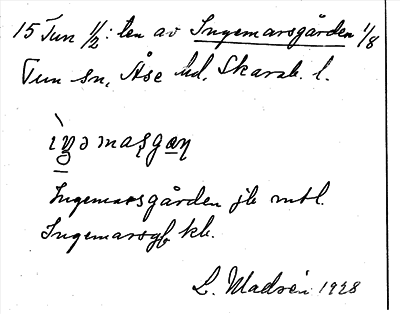 15 Tun 1/2: len av Ingemarsgården 1/8
Tun sn, Åse hd, Skarab. l.
Ingemarsgården jb mtl.
Ingemarsg kb.
1928